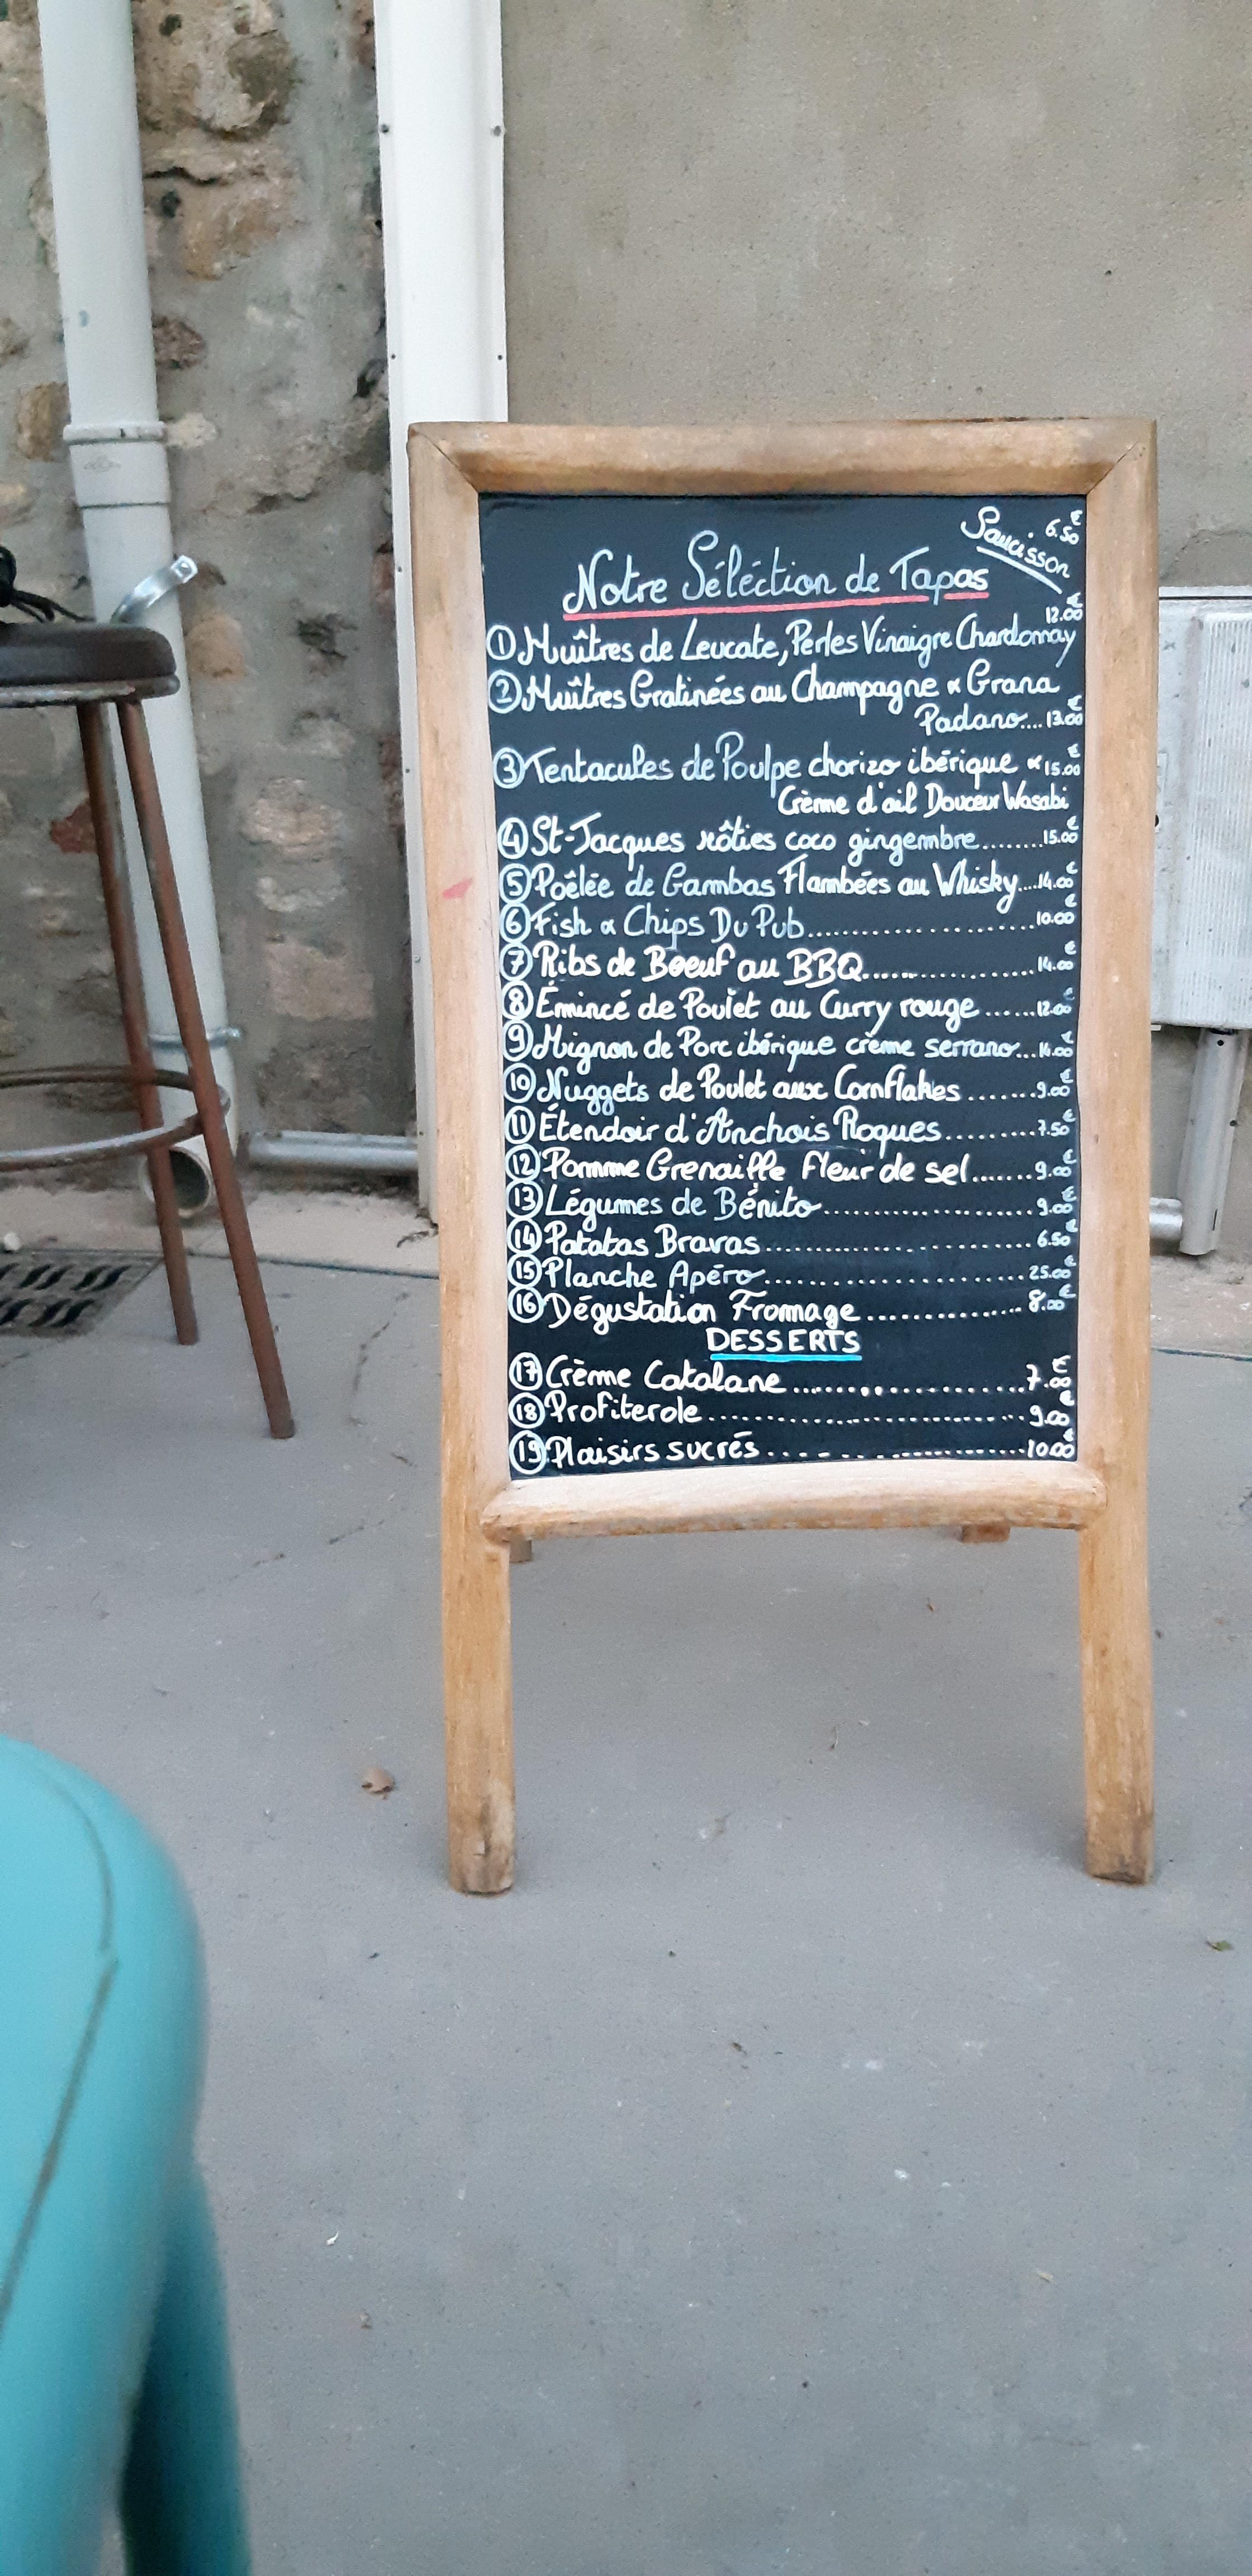 Saucisson 6.50€
Notre Séléction de Tapas
① Huîtres de Leucate, Perles Vinaigre Chardonnay 12.00€
② Huîtres Gratinées au Champagne & Grana
Padano....13.00€
③ Tentacules de Poulpe chorizo ibérique & 15.00€
Crème d'ail Douceur Wasabi
④ St-Jacques rôties coco gingembre........15.00€
⑤ Poêlée de Gambas Flambées au Whisky....14.00€
⑥ Fish & Chips Du Pub........................10.00€
⑦ Ribs de Boeuf au BBQ..................14.00€
⑧ Émincé de Poulet au Curry rouge......12.00€
⑨ Mignon de Porc ibérique crème serrano...14.00€
⑩ Nuggets de Poulet aux Cornflakes.......9.00€
⑪ Étendoir d'Anchois Roques..........7.50€
⑫ Pomme Grenaille Fleur de sel.......9.00€
⑬ Légumes de Bénito......................9.00€
⑭ Patatas Bravas............................6.50€
⑮ Planche Apéro............................25.00€
⑯ Dégustation Fromage.................8.00€
DESSERTS
⑰ Crème Catalane.......................7.00€
⑱ Profiterole..................................9.00€
⑲ Plaisirs sucrés..........................10.00€